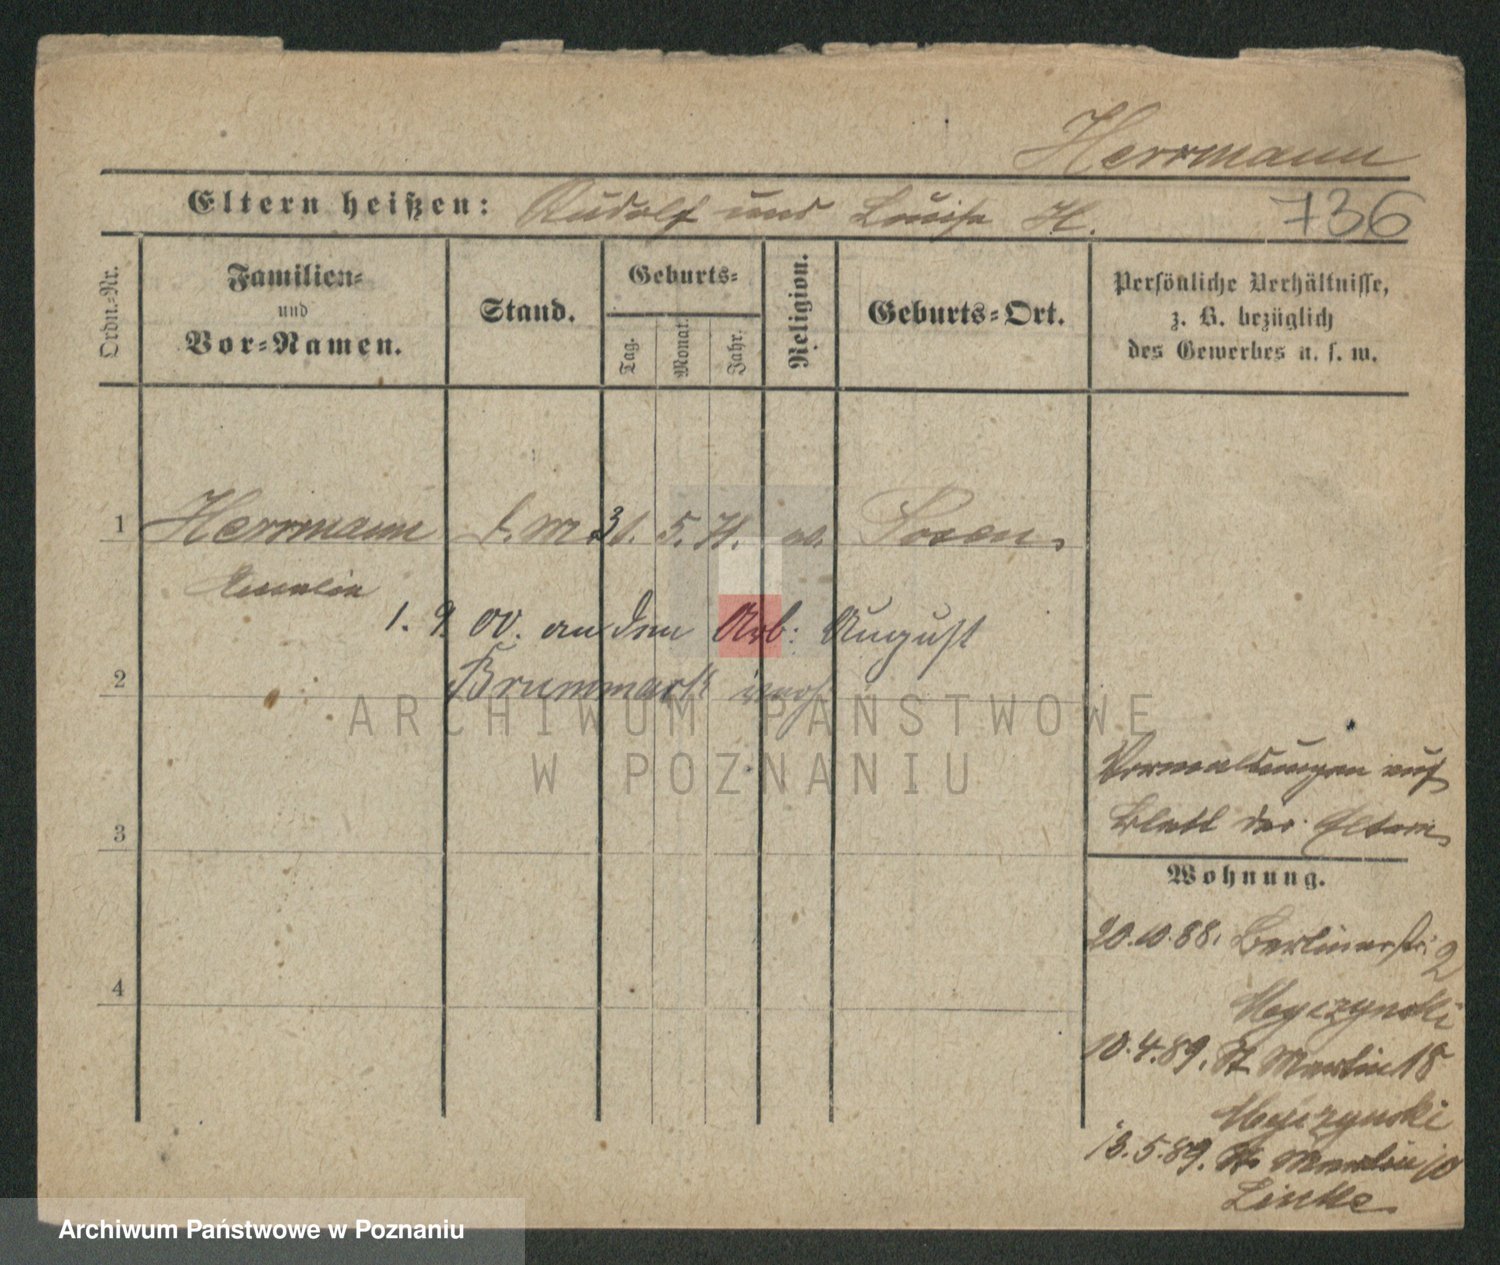 Herrmann
Eltern heißen: Rudolf und Louise H.
736
Ordn.-Nr.
Familien-
und
Vor-Namen.
Stand.
Geburts-
Tag.
Monat.
Jahr.
Religion.
Geburts-Ort.
Persönliche Verhältnisse,
z. B. bezüglich
des Gewerbes u. s. w.
1 Herrmann d. M. 31. 5. 71. ev. Posen
1. 9. 00. an den Arb: August
2 Brummack verh
ARCHIWUM PAŃSTWOWE
W POZNANIU
auf
3 Blatt der Eltern
Wohnung.
20.10.88. Berlinerstr. 2
4
10.4.89. St Martin 18
13.5.89. St Martin 10
Linke
Archiwum Państwowe w Poznaniu